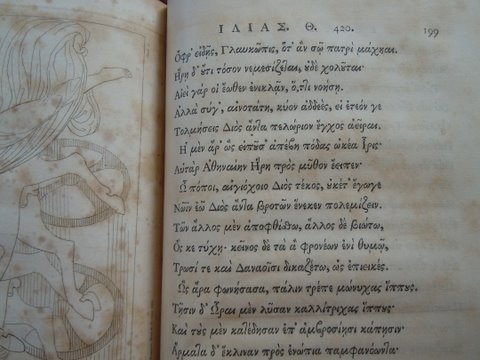 ΙΛΙΑΣ. Θ. 420. 199
Ὄφρ' εἰδῇς, Γλαυκῶπις, ὅτ' ἂν σῷ πατρὶ μάχηαι.
Ἥρῃ δ' ὔτι τόσον νεμεσίζεται, ὐδὲ χολῦται·
Αἰεὶ γάρ οἱ ἔωθεν ἐνικλᾷν, ὅ,τι νοήσῃ.
Ἀλλὰ σύγ', αἰνοτάτη, κύον ἀδδεὲς, εἰ ἐτεόν γε
Τολμήσεις Διὸς ἄντα πελώριον ἔγχος ἀεῖραι.
Ἡ μὲν ἄρ' ὣς εἰπῦσ' ἀπέβη πόδας ὠκέα Ἶρις·
Αὐτὰρ Ἀθηναίην Ἥρη πρὸς μῦθον ἔειπεν·
Ὢ πόποι, αἰγιόχοιο Διὸς τέκος, ὐκέτ' ἔγωγε
Νῶϊν ἐῶ Διὸς ἄντα βροτῶν ἕνεκεν πολεμίζειν.
Τῶν ἄλλος μὲν ἀποφθίσθω, ἄλλος δὲ βιώτω,
Ὅς κε τύχῃ· κεῖνος δὲ τὰ ἃ φρονέων ἐνὶ θυμῷ,
Τρωσί τε καὶ Δαναοῖσι δικαζέτω, ὡς ἐπιεικές.
Ὣς ἄρα φωνήσασα, πάλιν τρέπε μώνυχας ἵππυς·
Τῇσιν δ' Ὧραι μὲν λῦσαν καλλίτριχας ἵππυς·
Καὶ τὺς μὲν κατέδησαν ἐπ' ἀμβροσίῃσι κάπῃσιν·
Ἅρματα δ' ἔκλιναν πρὸς ἐνώπια παμφανόωντα·